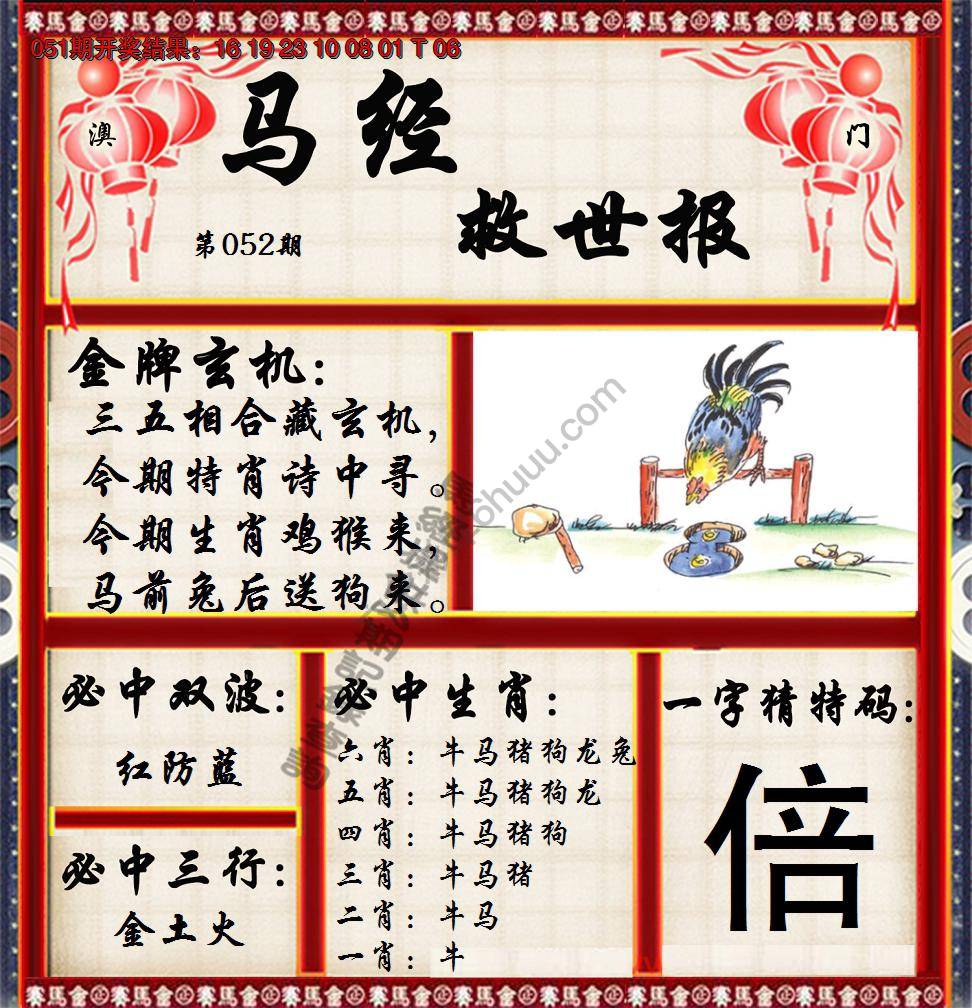 賽馬會
051期开奖结果：16 19 23 10 08 01 T 06
澳 门
马经
救世报
第052期
金牌玄机：
三五相合藏玄机，
今期特肖诗中寻。
今期生肖鸡猴来，
马前兔后送狗来。
必中双波：
红防蓝
必中三行：
金土火
必中生肖：
六肖：牛马猪狗龙兔
五肖：牛马猪狗龙
四肖：牛马猪狗
三肖：牛马猪
二肖：牛马
一肖：牛
一字猜特码：
倍